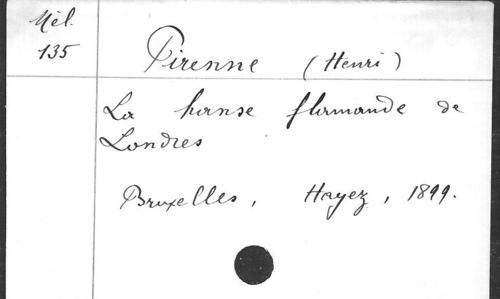 Mél.
135
Pirenne (Henri)
La hanse flamande de
Londres
Bruxelles, Hayez, 1899.